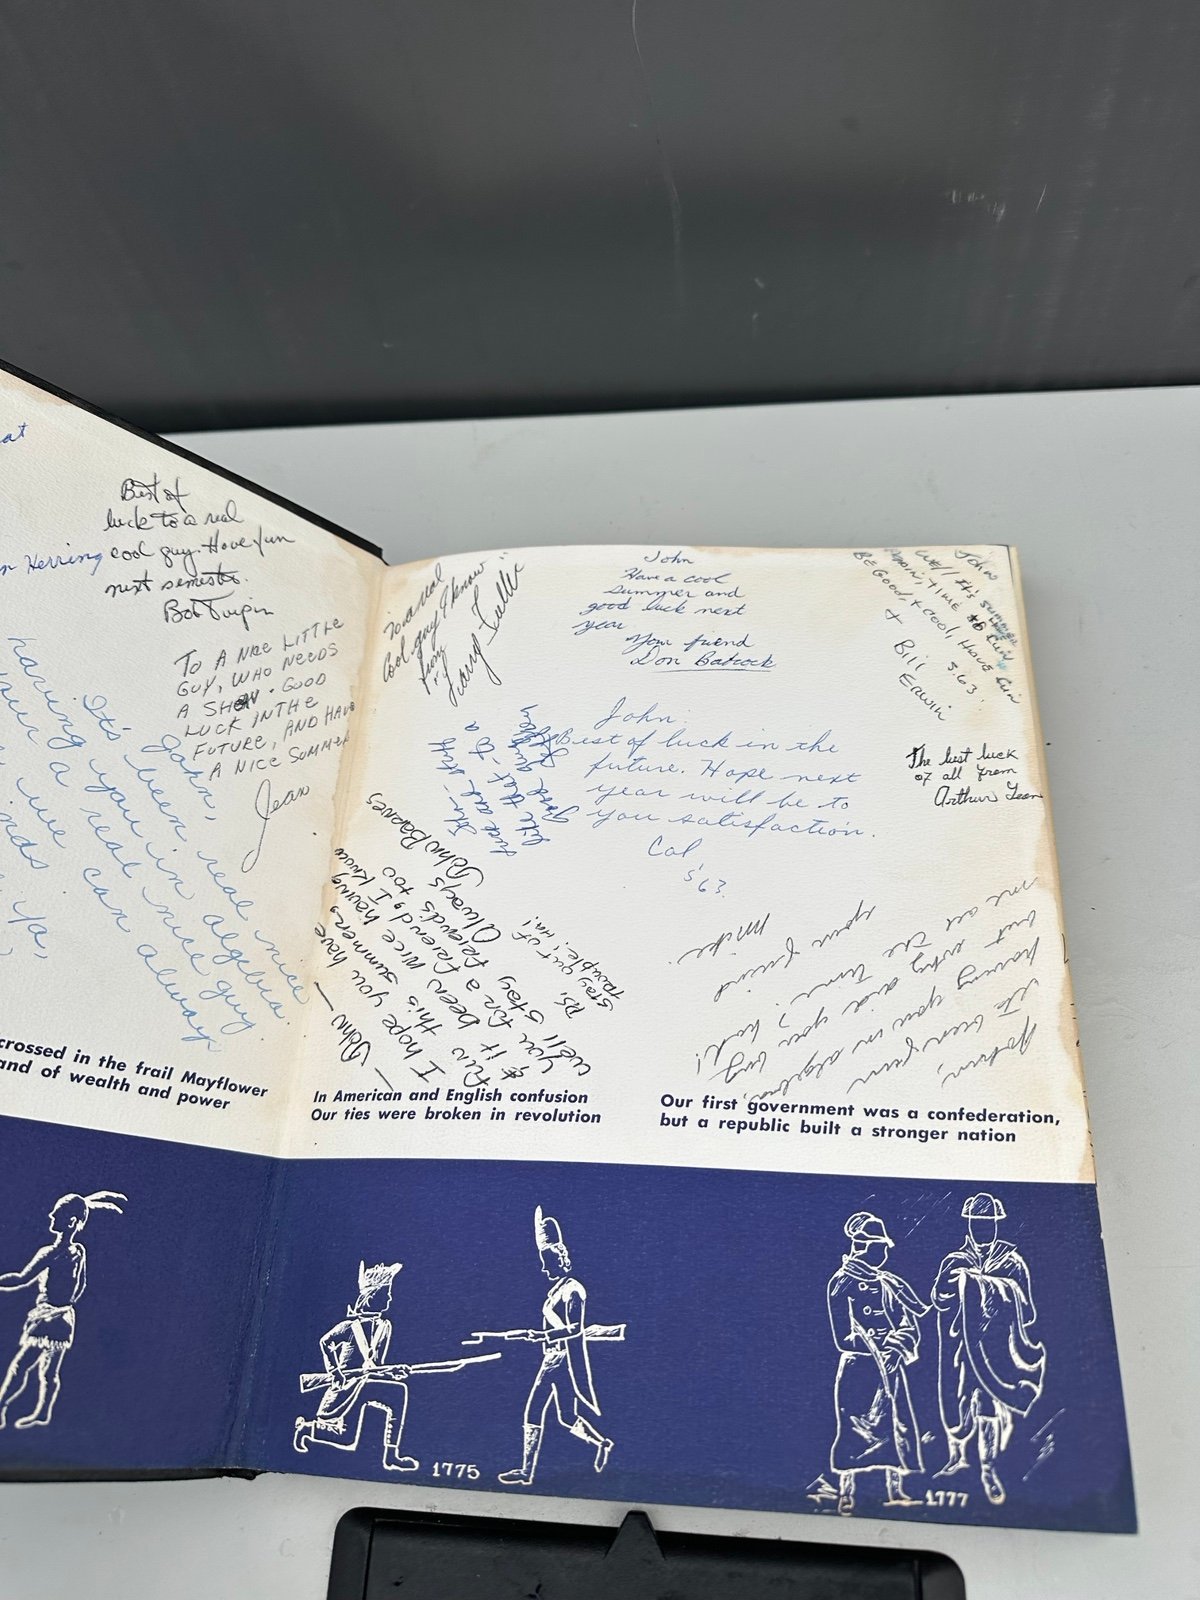 at
Best of
luck to a real
cool guy. Have fun
next semester.
Bob
Herring
TO A NICE LITTLE
GUY, WHO NEEDS
A SHOW. GOOD
LUCK IN THE
FUTURE, AND HAVE
A NICE SUMMER
Jean
John,
It's been real nice
having you in algebra.
your a real nice guy
we can always
Ya,
crossed in the frail Mayflower
and of wealth and power
To a real
Cool guy I know
from
Larry
John
Have a cool
summer and
good luck next
year
Your friend
Don Babcock
John
Well it's summer
again, time to fun
BE GOOD, + cool, HAVE fun
+ S'63
Bill Erwin
John:
Best of luck in the
future. Hope next
year will be to
you satisfaction.
Cal
S'63
The best luck
of all from
Arthur
luck and stuff
like that - to a
good guy
John —
I hope you have
fun this summer,
& it been nice having
you for a friend, I know
we'll stay friends too
Always
John Barnes
PS,
Stay out of
trouble, HA!
John,
It's been fun
having you in algebra,
but why did you bug
me all the time?
your friend
Mike
In American and English confusion
Our ties were broken in revolution
Our first government was a confederation,
but a republic built a stronger nation
1775
1777